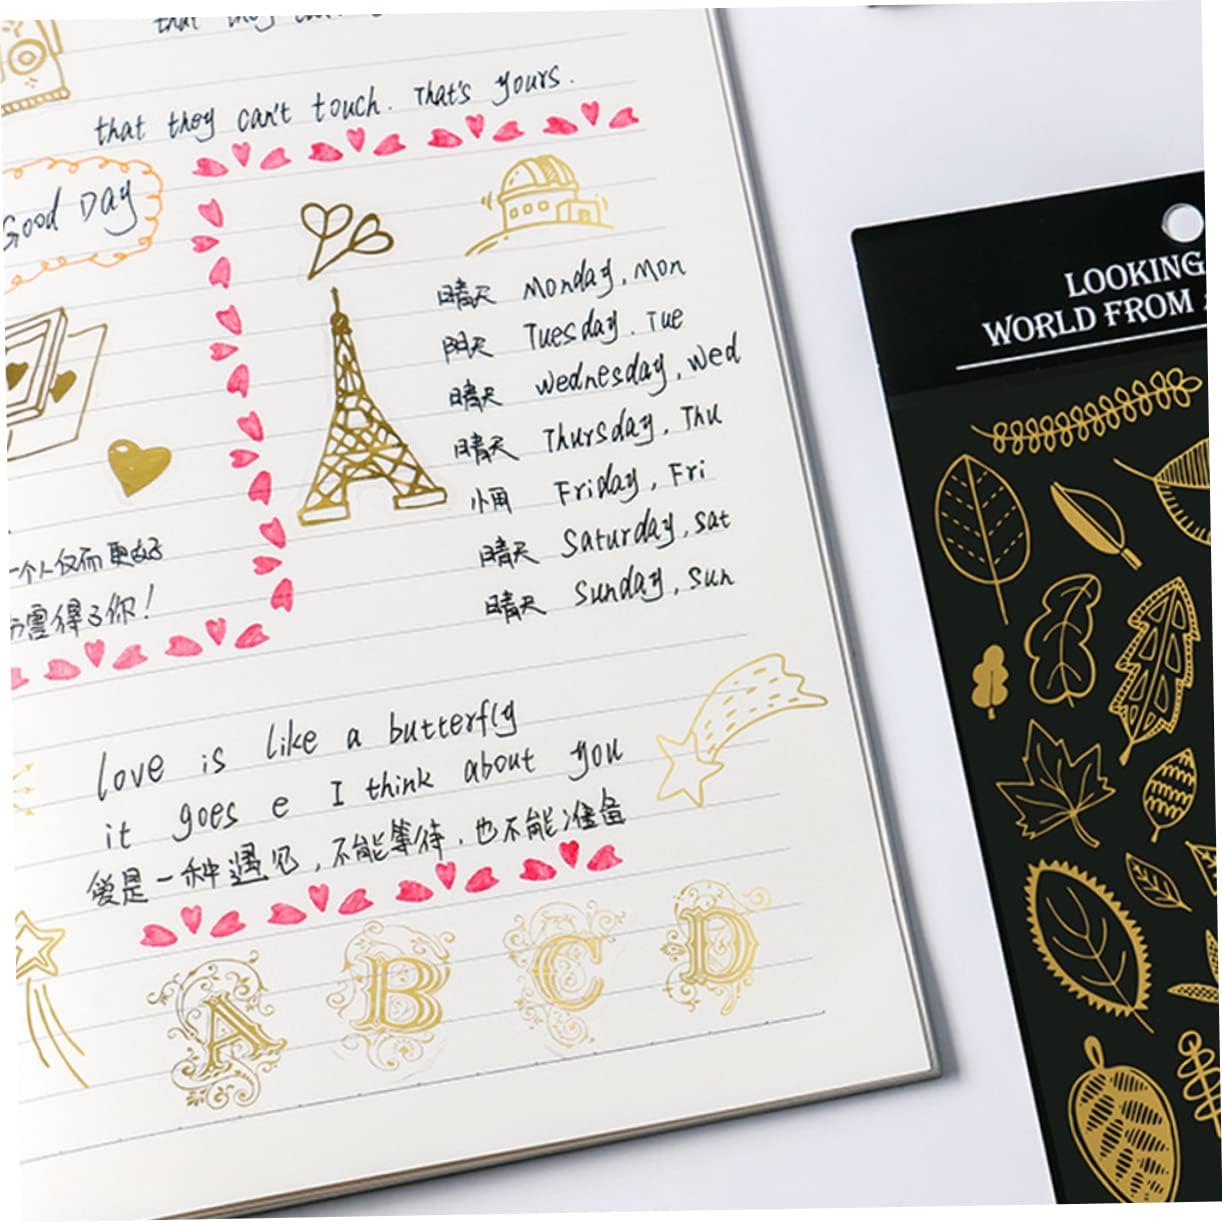 that they
that they can't touch. That's yours.
Good Day
晴天 Monday, Mon
阴天 Tuesday. Tue
晴天 Wednesday, Wed
晴天 Thursday, Thu
小雨 Friday, Fri
晴天 Saturday, Sat
晴天 Sunday, Sun
一个人仅而更好
需得了你!
love is like a butterfly
it goes e I think about you
爱是一种遇见，不能等待，也不能准备
A B C D
LOOKING
WORLD FROM